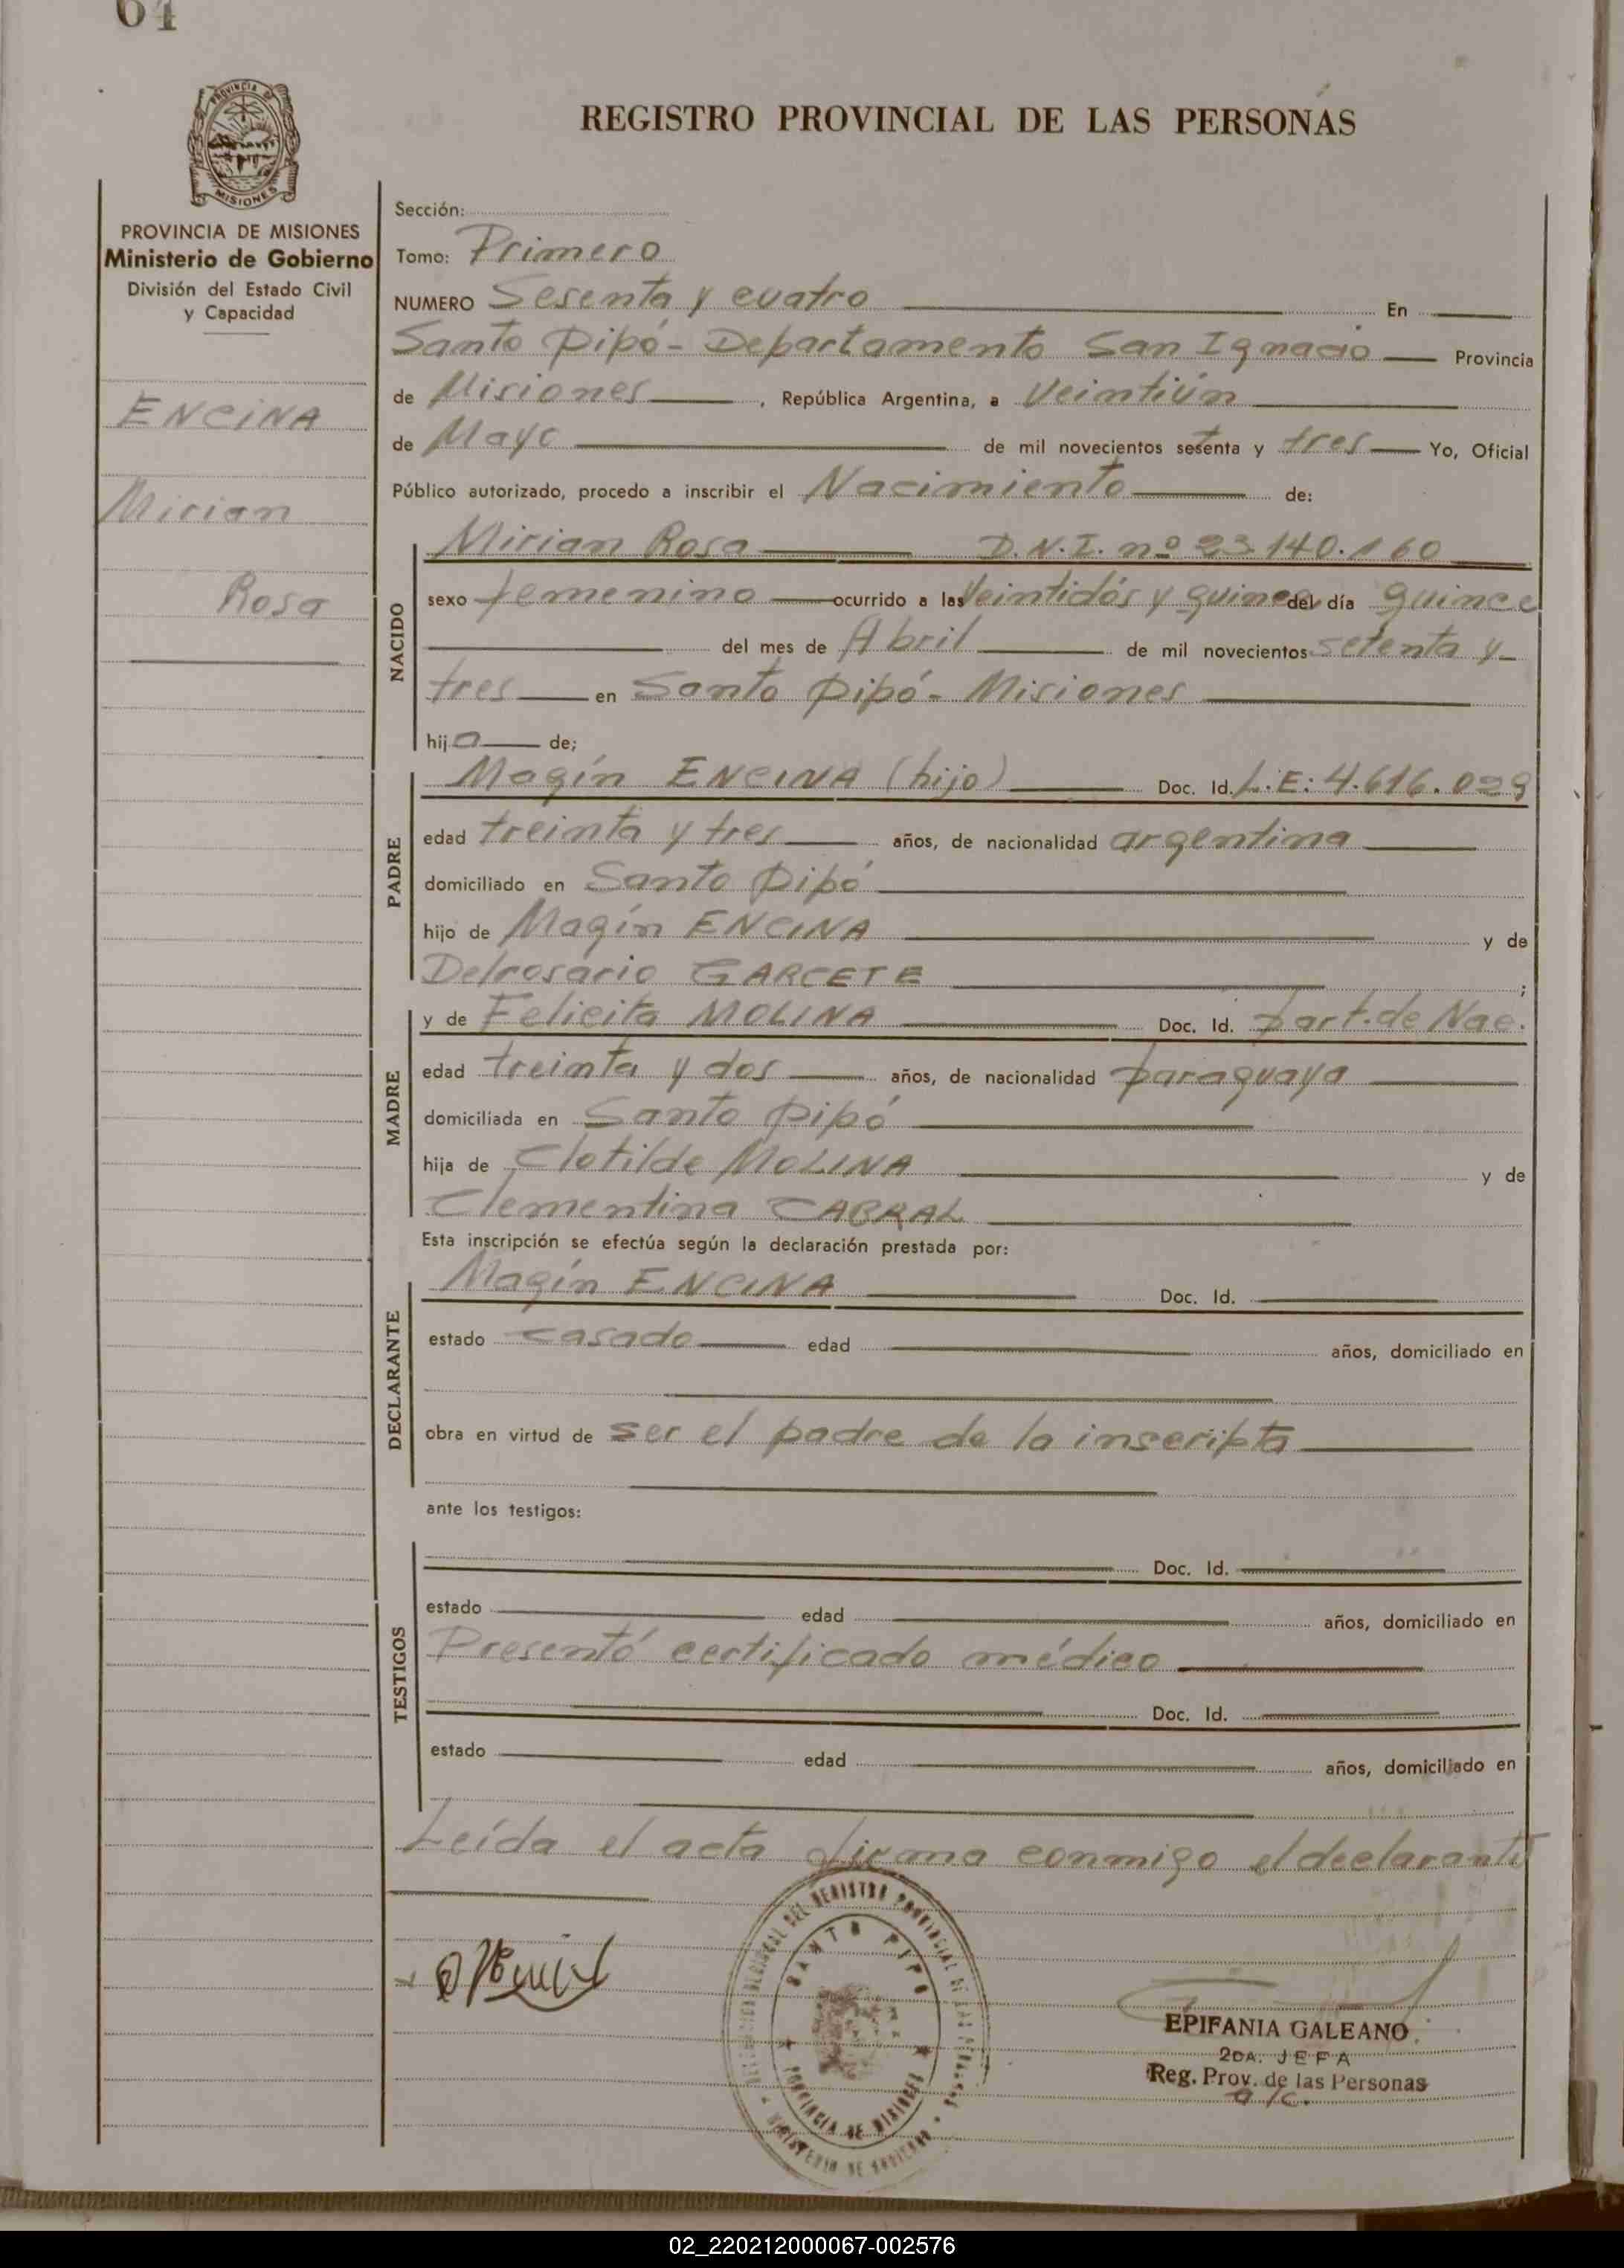 64
REGISTRO PROVINCIAL DE LAS PERSONAS
PROVINCIA DE MISIONES
Ministerio de Gobierno
División del Estado Civil
y Capacidad
ENCINA
Mirian
Rosa
Sección:
Tomo: Primero
NUMERO Sesenta y cuatro En
Santo Pipó - Departamento San Ignacio Provincia
de Misiones, República Argentina, a Veintiún
de Mayo de mil novecientos setenta y tres Yo, Oficial
Público autorizado, procedo a inscribir el Nacimiento de:
NACIDO
Mirian Rosa D.N.I. nº 23.140.160
sexo femenino ocurrido a las Veintidós y quince del día quince
del mes de Abril de mil novecientos setenta y
tres en Santo Pipó - Misiones
hija de;
PADRE
Magín ENCINA (hijo) Doc. Id. L.E: 4.616.029
edad treinta y tres años, de nacionalidad argentina
domiciliado en Santo Pipó
hijo de Magín ENCINA y de
Delrosario GARCETE ;
MADRE
y de Felicita MOLINA Doc. Id. Part. de Nac.
edad treinta y dos años, de nacionalidad paraguaya
domiciliada en Santo Pipó
hija de Clotilde MOLINA y de
Clementina CABRAL
Esta inscripción se efectúa según la declaración prestada por:
DECLARANTE
Magín ENCINA Doc. Id.
estado casado edad años, domiciliado en
obra en virtud de ser el padre de la inscripta
ante los testigos:
TESTIGOS
Doc. Id.
estado edad años, domiciliado en
Presentó certificado médico
Doc. Id.
estado edad años, domiciliado en
Leída el acta firma conmigo el declarante
SANTO PIPO
PROVINCIA DE MISIONES
EPIFANIA GALEANO
2DA. JEFA
Reg. Prov. de las Personas
a/c.
02_220212000067-002576